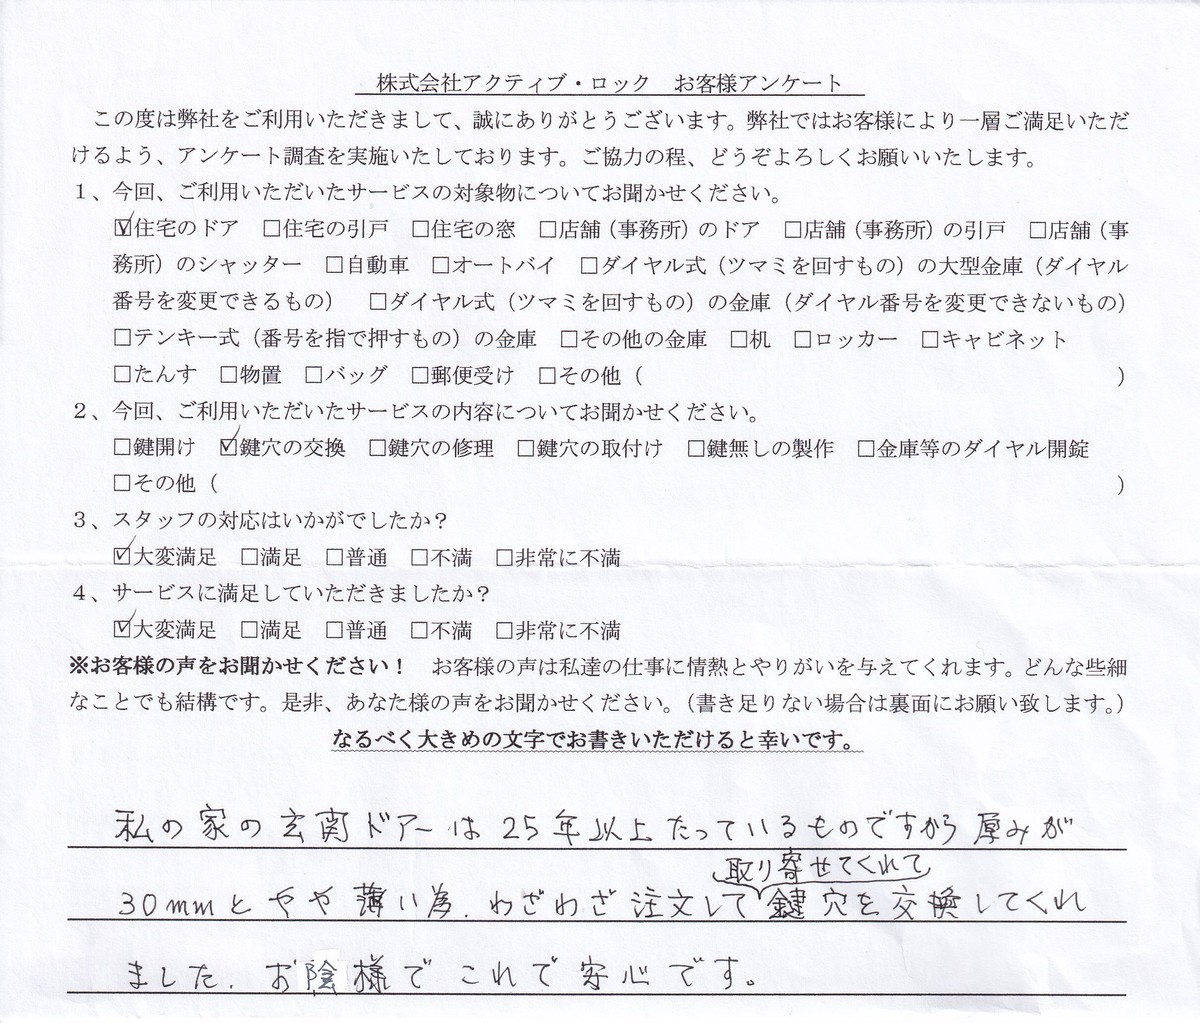 株式会社アクティブ・ロック　お客様アンケート
この度は弊社をご利用いただきまして、誠にありがとうございます。弊社ではお客様により一層ご満足いただ
けるよう、アンケート調査を実施いたしております。ご協力の程、どうぞよろしくお願いいたします。
１、今回、ご利用いただいたサービスの対象物についてお聞かせください。
☑住宅のドア　□住宅の引戸　□住宅の窓　□店舗（事務所）のドア　□店舗（事務所）の引戸　□店舗（事
務所）のシャッター　□自動車　□オートバイ　□ダイヤル式（ツマミを回すもの）の大型金庫（ダイヤル
番号を変更できるもの）　□ダイヤル式（ツマミを回すもの）の金庫（ダイヤル番号を変更できないもの）
□テンキー式（番号を指で押すもの）の金庫　□その他の金庫　□机　□ロッカー　□キャビネット
□たんす　□物置　□バッグ　□郵便受け　□その他（　　　　　　　　　　）
２、今回、ご利用いただいたサービスの内容についてお聞かせください。
□鍵開け　☑鍵穴の交換　□鍵穴の修理　□鍵穴の取付け　□鍵無しの製作　□金庫等のダイヤル開錠
□その他（　　　　　　　　　　）
３、スタッフの対応はいかがでしたか？
☑大変満足　□満足　□普通　□不満　□非常に不満
４、サービスに満足していただきましたか？
☑大変満足　□満足　□普通　□不満　□非常に不満
※お客様の声をお聞かせください！　お客様の声は私達の仕事に情熱とやりがいを与えてくれます。どんな些細
なことでも結構です。是非、あなた様の声をお聞かせください。（書き足りない場合は裏面にお願い致します。）
なるべく大きめの文字でお書きいただけると幸いです。
私の家の玄関ドアーは25年以上たっているものですから厚みが
取り寄せてくれて
30mmとやや薄い為、わざわざ注文して鍵穴を交換してくれ
ました。お陰様でこれで安心です。